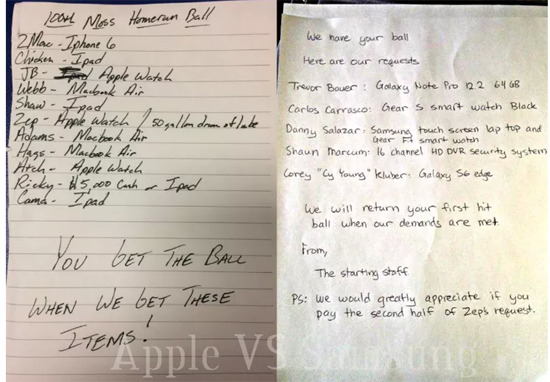 100th Moss Homerun Ball
ZMac - Iphone 6
Chicken - Ipad
JB - Ipad Apple Watch
Webb - Macbook Air
Shaw - Ipad
Zep - Apple Watch / 50 gallon drum of lube
Adams - Macbook Air
Hags - Macbook Air
Atch - Apple Watch
Ricky - $5,000 Cash or Ipad
Cama - Ipad
YOU GET THE BALL
WHEN WE GET THESE
ITEMS!
We have your ball
Here are our requests
Trevor Bauer: Galaxy Note Pro 12.2 64GB
Carlos Carrasco: Gear S smart watch Black
Danny Salazar: Samsung touch screen lap top and
Gear Fit smart watch
Shaun Marcum: 16 channel HD DVR security system
Corey "Cy Young" Kluber: Galaxy S6 edge
We will return your first hit
ball when our demands are met
From,
The starting staff
PS: we would greatly appreciate if you
pay the second half of Zep's request.
Apple VS Samsung